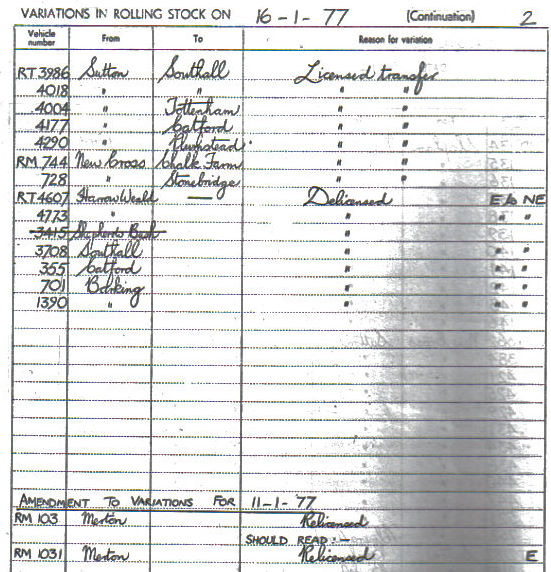 VARIATIONS IN ROLLING STOCK ON 16-1-77 (Continuation) 2
Vehicle number From To Reason for variation
RT 3986 Sutton Southall Licensed transfer
4018 " " " "
4004 " Tottenham " "
4177 " Catford " "
4290 " Plumstead " "
RM 744 New Cross Chalk Farm " "
728 " Stonebridge " "
RT 4607 Harrow Weald — Delicensed E to NE
4773 " " " "
3415 Shepherds Bush "
3708 Southall " " "
355 Catford " " "
701 Barking " " "
1390 " " " "
AMENDMENT TO VARIATIONS FOR 11-1-77
RM 103 Merton Relicensed
SHOULD READ :-
RM 1031 Merton Relicensed E